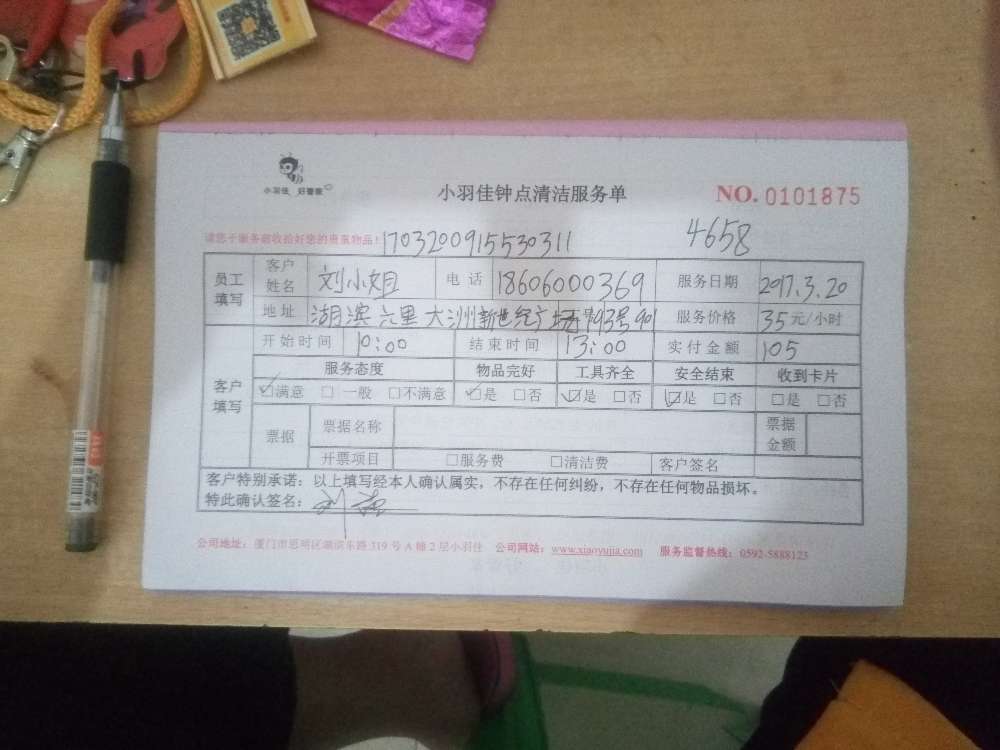 小羽佳 好管家
小羽佳钟点清洁服务单 NO. 0101875
请您于服务前收拾好您的贵重物品! 1703200915530311 4658
员工填写 客户姓名 刘小姐 电话 18606000369 服务日期 2017.3.20
地址 湖滨六里大洲新世纪广场 193号901 服务价格 35元/小时
客户填写 开始时间 10:00 结束时间 13:00 实付金额 105
服务态度 物品完好 工具齐全 安全结束 收到卡片
☑满意 □一般 □不满意 ☑是 □否 ☑是 □否 ☑是 □否 □是 □否
票据 票据名称 票据金额
开票项目 □服务费 □清洁费 客户签名
客户特别承诺：以上填写经本人确认属实，不存在任何纠纷，不存在任何物品损坏。
特此确认签名：
公司地址：厦门市思明区湖滨东路319号A幢2层小羽佳 公司网站：www.xiaoyujia.com 服务监督热线：0592-5888123